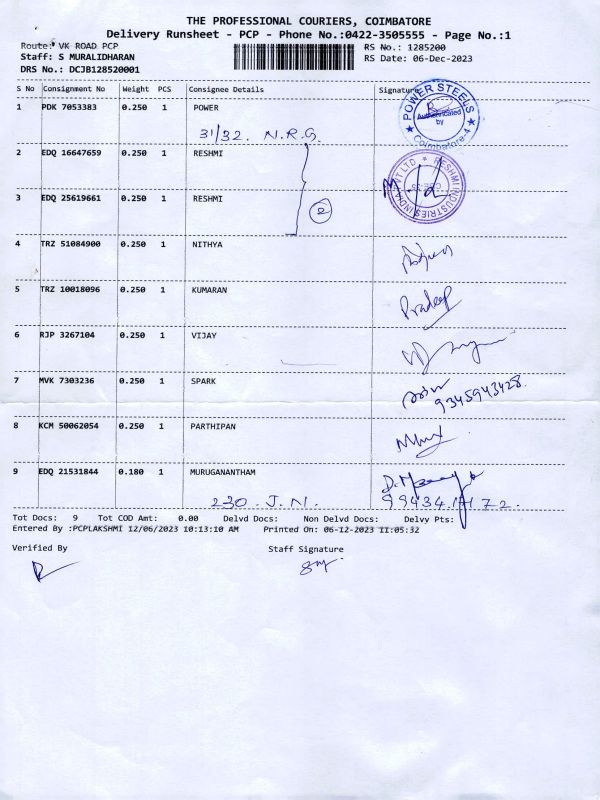 THE PROFESSIONAL COURIERS, COIMBATORE
Delivery Runsheet - PCP - Phone No.:0422-3505555 - Page No.:1
Route: VK ROAD PCP RS No.: 1285200
Staff: S MURALIDHARAN RS Date: 06-Dec-2023
DRS No.: DCJB128520001
S No Consignment No Weight PCS Consignee Details Signature
1 PDK 7053383 0.250 1 POWER
31/32. N.R.G.
POWER STEELS
Authenticated
by
Coimbatore-4
2 EDQ 16647659 0.250 1 RESHMI
RESHMI INDUSTRIES INDIA PVT LTD
3 EDQ 25619661 0.250 1 RESHMI
2
4 TRZ 51084900 0.250 1 NITHYA
5 TRZ 10018096 0.250 1 KUMARAN Pradeep
6 RJP 3267104 0.250 1 VIJAY
7 MVK 7303236 0.250 1 SPARK
9345943428.
8 KCM 50062054 0.250 1 PARTHIPAN
9 EDQ 21531844 0.180 1 MURUGANANTHAM
230. J.N.
Tot Docs: 9 Tot COD Amt: 0.00 Delvd Docs: Non Delvd Docs: Delvy Pts:
Entered By :PCPLAKSHMI 12/06/2023 10:13:10 AM Printed On: 06-12-2023 11:05:32
Verified By Staff Signature